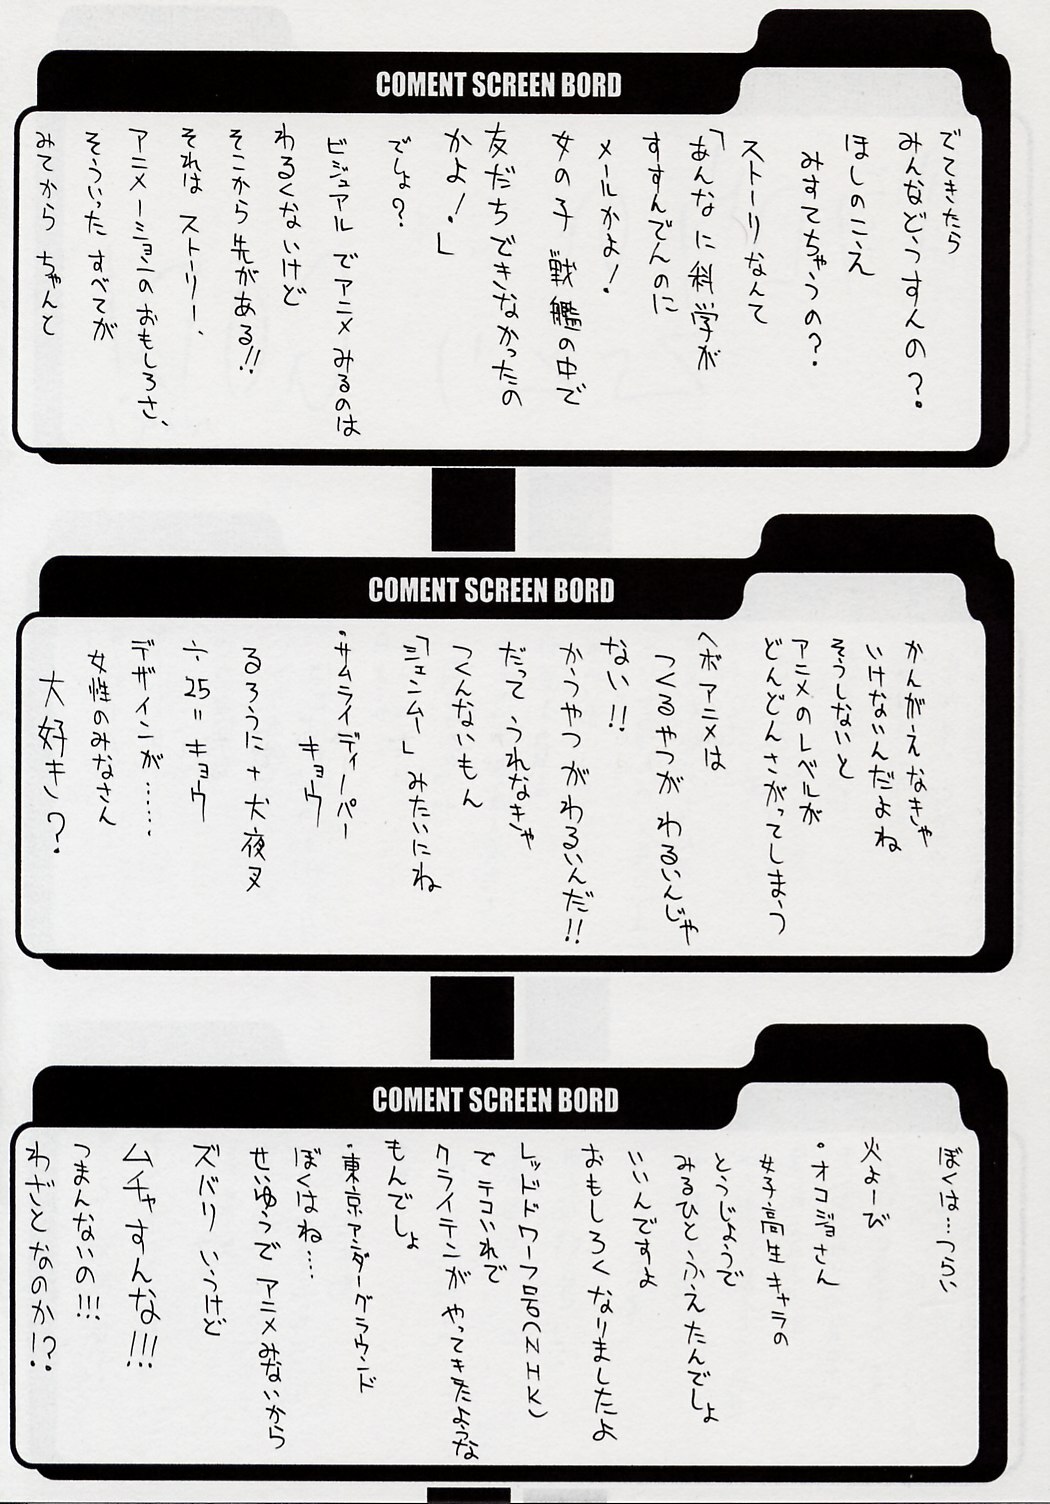 COMENT SCREEN BORD
でてきたら
みんなどうすんの？
ほしのこえ
みすてちゃうの？
ストーリなんて
「あんなに科学が
すすんでんのに
メールかよ！
女の子 戦艦の中で
友だちできなかったの
かよ！」
でしょ？
ビジュアルでアニメみるのは
わるくないけど
そこから先がある!!
それは ストーリー、
アニメーションのおもしろさ、
そういった すべてが
みてから ちゃんと
COMENT SCREEN BORD
かんがえなきゃ
いけないんだよね
そうしないと
アニメのレベルが
どんどんさがってしまう
ヘボアニメは
つくるやつが わるいんじゃ
ない!!
かうやつがわるいんだ!!
だって うれなきゃ
つくんないもん
「シェンムー」みたいにね
・サムライディーパー
キョウ
るろうに + 犬夜叉
÷25＝キョウ
デザインが……、
女性のみなさん
大好き？
COMENT SCREEN BORD
ぼくは…つらい
火よーび
・オコジョさん
女子高生キャラの
とうじょうで
みるひと ふえたんでしょ
いいんですよ
おもしろくなりましたよ
レッドドワーフ号(NHK)
でテコいれで
クライテンがやってきたような
もんでしょ
・東京アンダーグラウンド
ぼくはね…
せいゆうでアニメみないから
ズバリ いうけど
ムチャすんな!!!
つまんないの!!!
わざとなのか!?